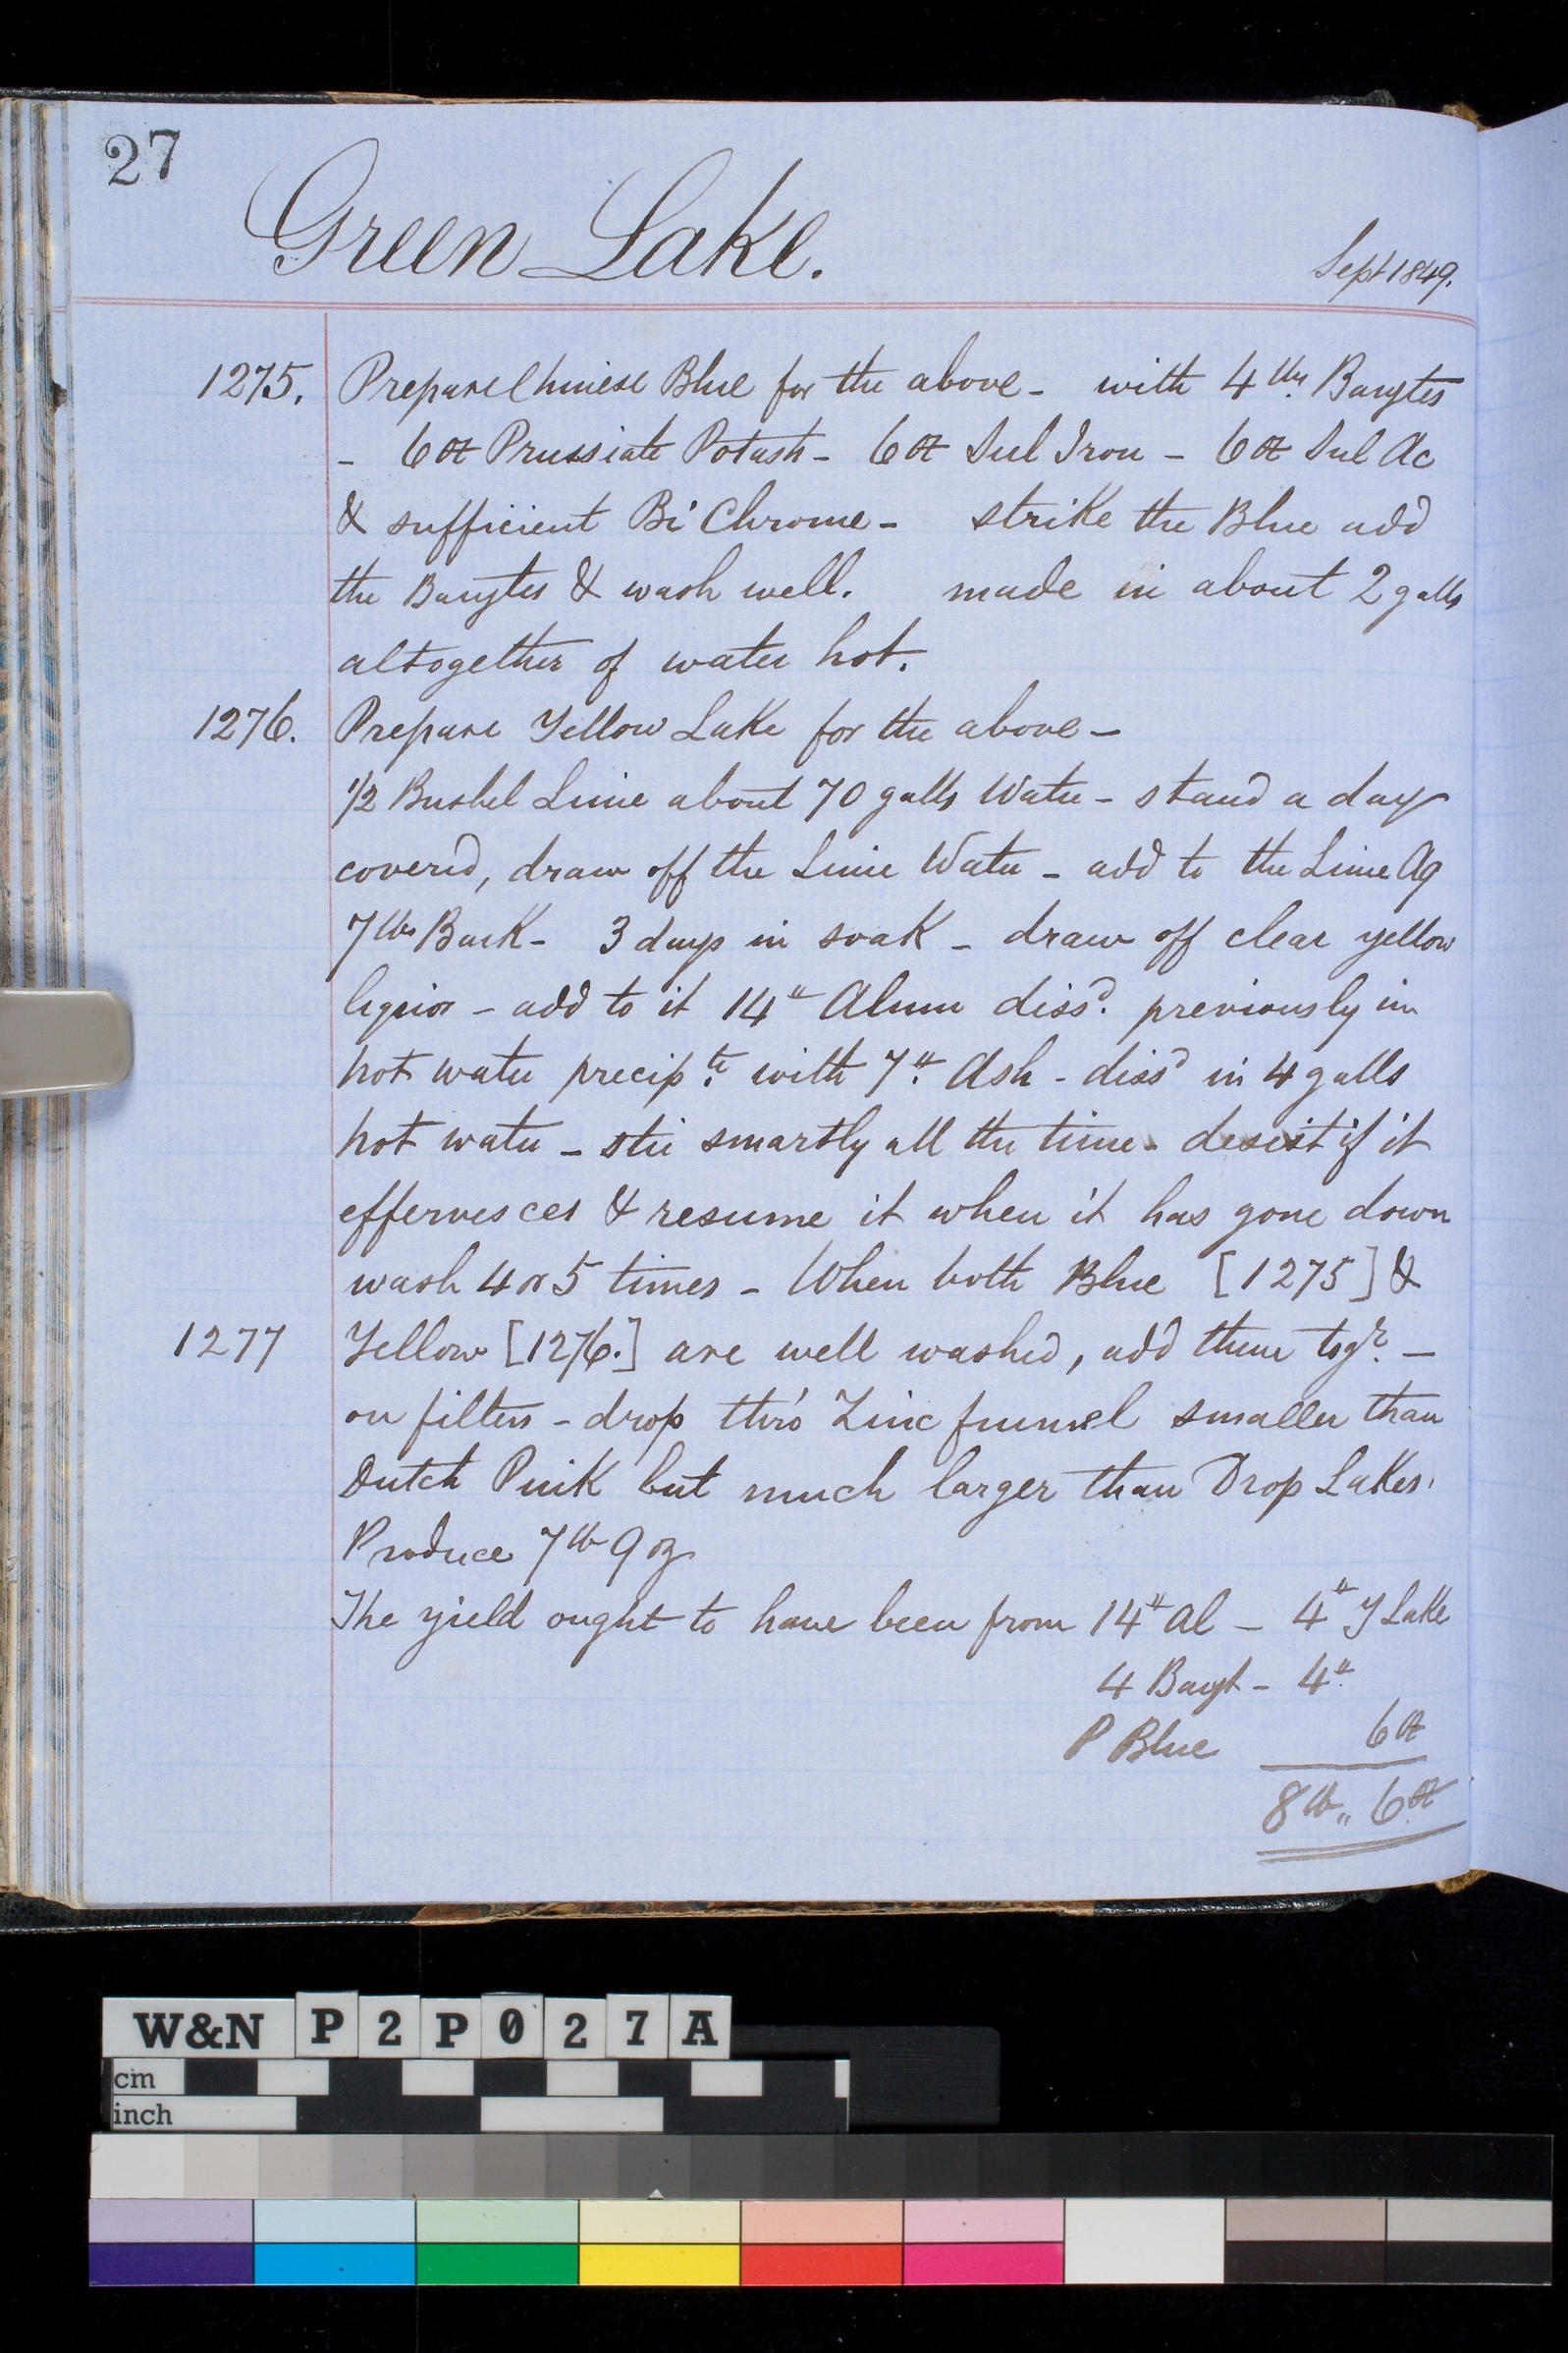 27
Green Lake.
Sept 1849.
1275. Prepare Chinese Blue for the above - with 4 lbs. Barytes
- 6 oz Prussiate Potash - 6 oz Sul Iron - 6 oz Sul Ac
& sufficient Bi Chrome - strike the Blue add
the Barytes & wash well. made in about 2 galls
altogether of water hot.
1276. Prepare Yellow Lake for the above -
1/2 Bushel Lime about 70 galls Water - stand a day
covered, draw off the Lime Water - add to the Lime Aq
7 lbs Bark - 3 days in soak - draw off clear yellow
liquor - add to it 14 " Alum dissd. previously in
hot water precip.te with 7 ". Ash - dissd in 4 galls
hot water - stir smartly all the time - desist if it
effervesces & resume it when it has gone down
wash 4 or 5 times - When both Blue [1275] &
1277 Yellow [1276.] are well washed, add them togr. -
on filters - drop thro' Zinc funnel smaller than
Dutch Pink but much larger than Drop Lakes.
Produce 7 lb 9 oz
The yield ought to have been from 14 " Al - 4 " Y Lake
4 Baryt - 4 "
P Blue 6 oz
8 lb " 6 oz
W&N P2P027A
cm
inch